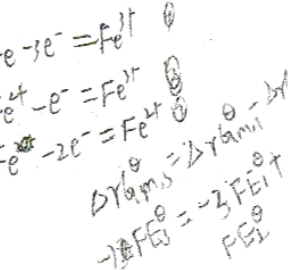 e-3e⁻=Fe³⁺ ①
e²⁺-e⁻=Fe³⁺ ②
Fe-2e⁻=Fe²⁺ ③
ΔrGm,3^θ=ΔrGm,1^θ-Δr
FE3^θ=-3FE1^θ+
FE2^θ